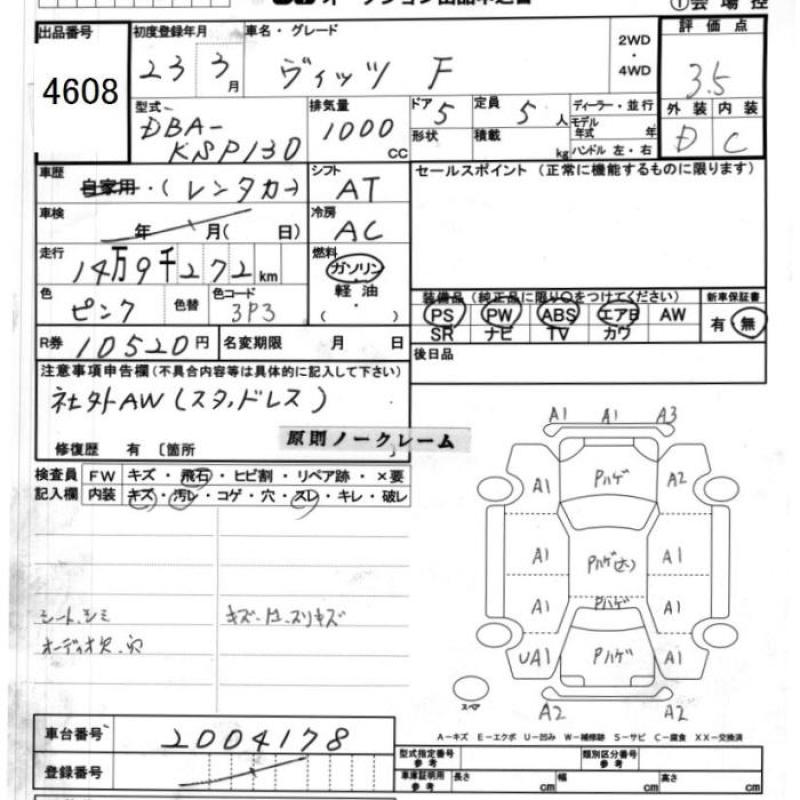 ①会場控
出品番号
4608
初度登録年月
23 3月
車名・グレード
ヴィッツ F
2WD
・
4WD
評価点
3.5
外装 内装
D C
型式
DBA-
KSP130
排気量
1000
CC
ドア 5
定員 5人
形状
積載 kg
ディーラー・並行
モデル年式 年
ハンドル 左・右
車歴
自家用・(レンタカー)
シフト
AT
車検
年 月( 日)
冷房
AC
走行
14万9千272km
燃料
ガソリン
・
軽油
・
( )
色
ピンク
色替
色コード
3P3
R券 10520円
名変期限 月 日
セールスポイント (正常に機能するものに限ります)
装備品 (純正品に限り○をつけてください)
PS PW ABS エアB AW
SR ナビ TV カワ
新車保証書
有・無
後日品
注意事項申告欄(不具合内容等は具体的に記入して下さい)
社外AW(スタッドレス)
原則ノークレーム
修復歴 有 〔箇所 〕
検査員
記入欄
FW キズ・飛石・ヒビ割・リペア跡・×要
内装 キズ・汚レ・コゲ・穴・スレ・キレ・破レ
シート、シミ
オーディオ欠、穴
A1 A1 A3
A1 Pハゲ A2
A1 Pハゲ(大) A1
A1 Pハゲ A1
UA1 Pハゲ A1
A2 A2
スペア
A-キズ E-エクボ U-凹み W-補修跡 S-サビ C-腐食 XX-交換済
車台番号 2004178
登録番号
型式指定番号
参考
類別区分番号
参考
車庫証明用
参考
長さ cm 幅 cm 高さ cm